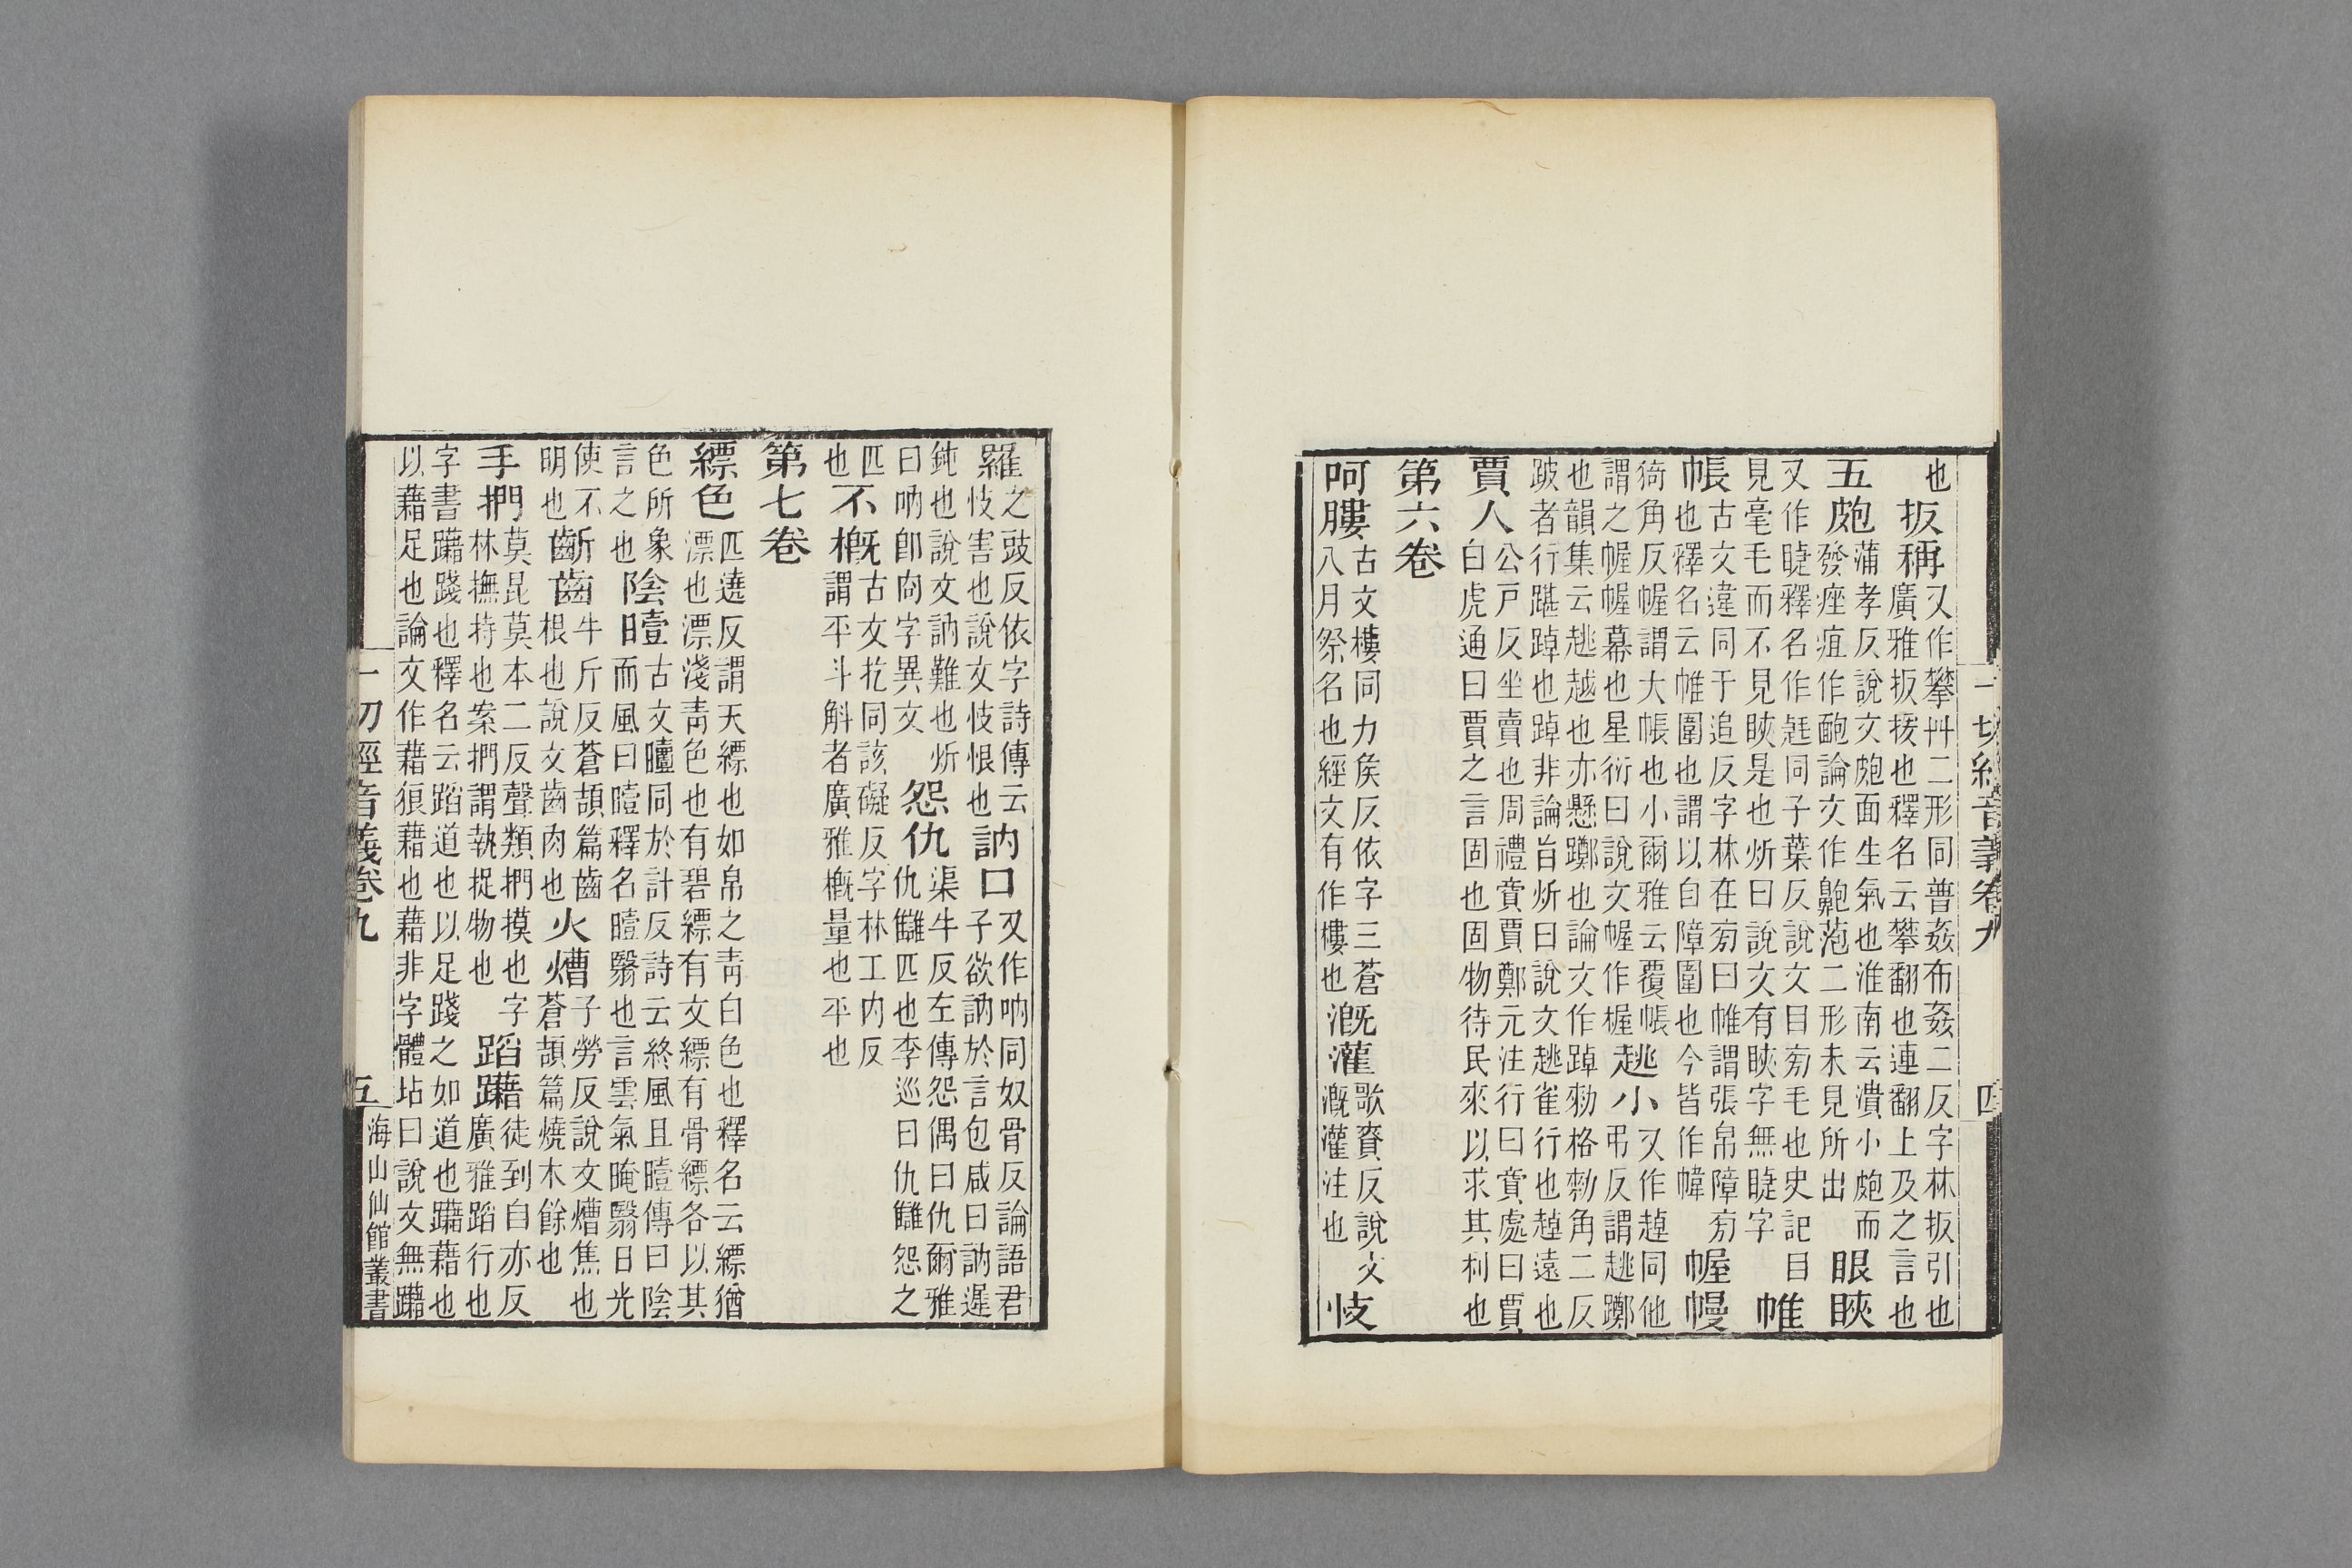 也扳稱又作攀𢪒二形同普姦布姦二反字林扳引也
廣雅扳援也釋名云攀翻也連翻上及之言也
五皰蒲孝反說文皰面生氣也淮南云潰小皰而眼睞
發痤疽作皰論文作䶌萢二形未見所出
又作睫釋名作䀹同子葉反說文目旁毛也史記目帷
見毫毛而不見睞是也炘曰說文有睞字無睫字
帳古文違同于追反字林在旁曰帷謂張帛障旁幄幔
也釋名云帷圍也謂以自障圍也今皆作幃
猗角反幄謂大帳也小爾雅云覆帳趒小又作趠同他
謂之幄幄幕也星衍曰說文幄作楃弔反謂趒躑
也韻集云趒越也亦懸躑也論文作踔勑格勑角二反
跛者行踸踔也踔非論旨炘曰說文趒雀行也趠遠也
賈人公戸反坐賣也周禮賚賈鄭元注行曰賚處曰賈
白虎通曰賈之言固也固物待民來以求其利也
第六卷
呵膢古文樓同力矦反依字三蒼溉灌歌賚反說文忮
八月祭名也經文有作樓也溉灌注也
一切經音義卷九 四
羅之豉反依字詩傳云訥口又作吶同奴骨反論語君
忮害也說文忮恨也子欲訥於言包咸曰訥遲
鈍也說文訥難也炘怨仇渠牛反左傳怨偶曰仇爾雅
曰吶卽㕯字異文仇讎匹也李巡曰仇讎怨之
匹不概古文扢同該礙反字林工內反
也謂平斗斛者廣雅概量也平也
第七卷
縹色匹遶反謂天縹也如帛之靑白色也釋名云縹猶
漂也漂淺靑色也有碧縹有文縹有骨縹各以其
色所象陰曀古文𪑀同於計反詩云終風且曀傳曰陰
言之也而風曰曀釋名曀翳也言雲氣晻翳日光
使不齗齒牛斤反蒼頡篇齒火㷮子勞反說文㷮焦也
明也根也說文齒肉也蒼頡篇燒木餘也
手捫莫昆莫本二反聲類捫摸也字蹈躤徒到自亦反
林撫持也案捫謂執捉物也廣雅蹈行也
字書躤踐也釋名云蹈道也以足踐之如道也躤藉也
以藉足也論文作藉狼藉也藉非字體坫曰說文無躤
一切經音義卷九 五 海山仙館叢書